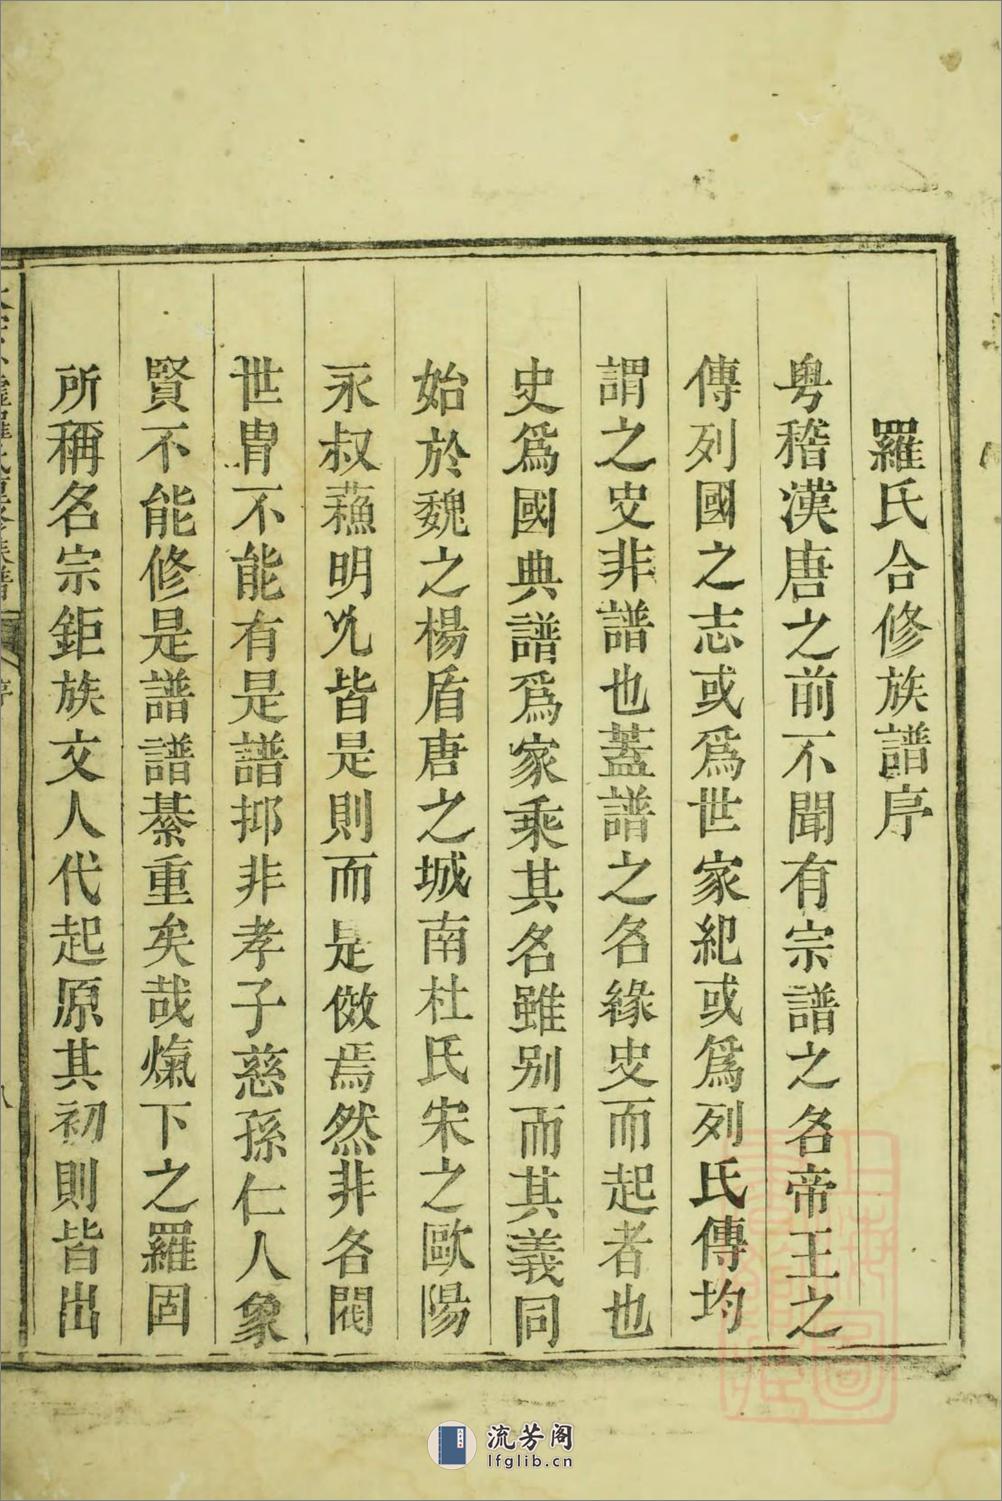 羅氏合修族譜序
粤稽漢唐之前不聞有宗譜之名帝王之
傳列國之志或爲世家紀或爲列氏傳均
謂之史非譜也蓋譜之名緣史而起者也
史爲國典譜爲家乘其名雖别而其義同
始於魏之楊盾唐之城南杜氏宋之歐陽
永叔蘓明允皆是則而是倣焉然非各閥
世胄不能有是譜抑非孝子慈孫仁人象
賢不能修是譜譜綦重矣哉爊下之羅固
所稱名宗鉅族文人代起原其初則皆出
序
八
流芳阁
lfglib.cn